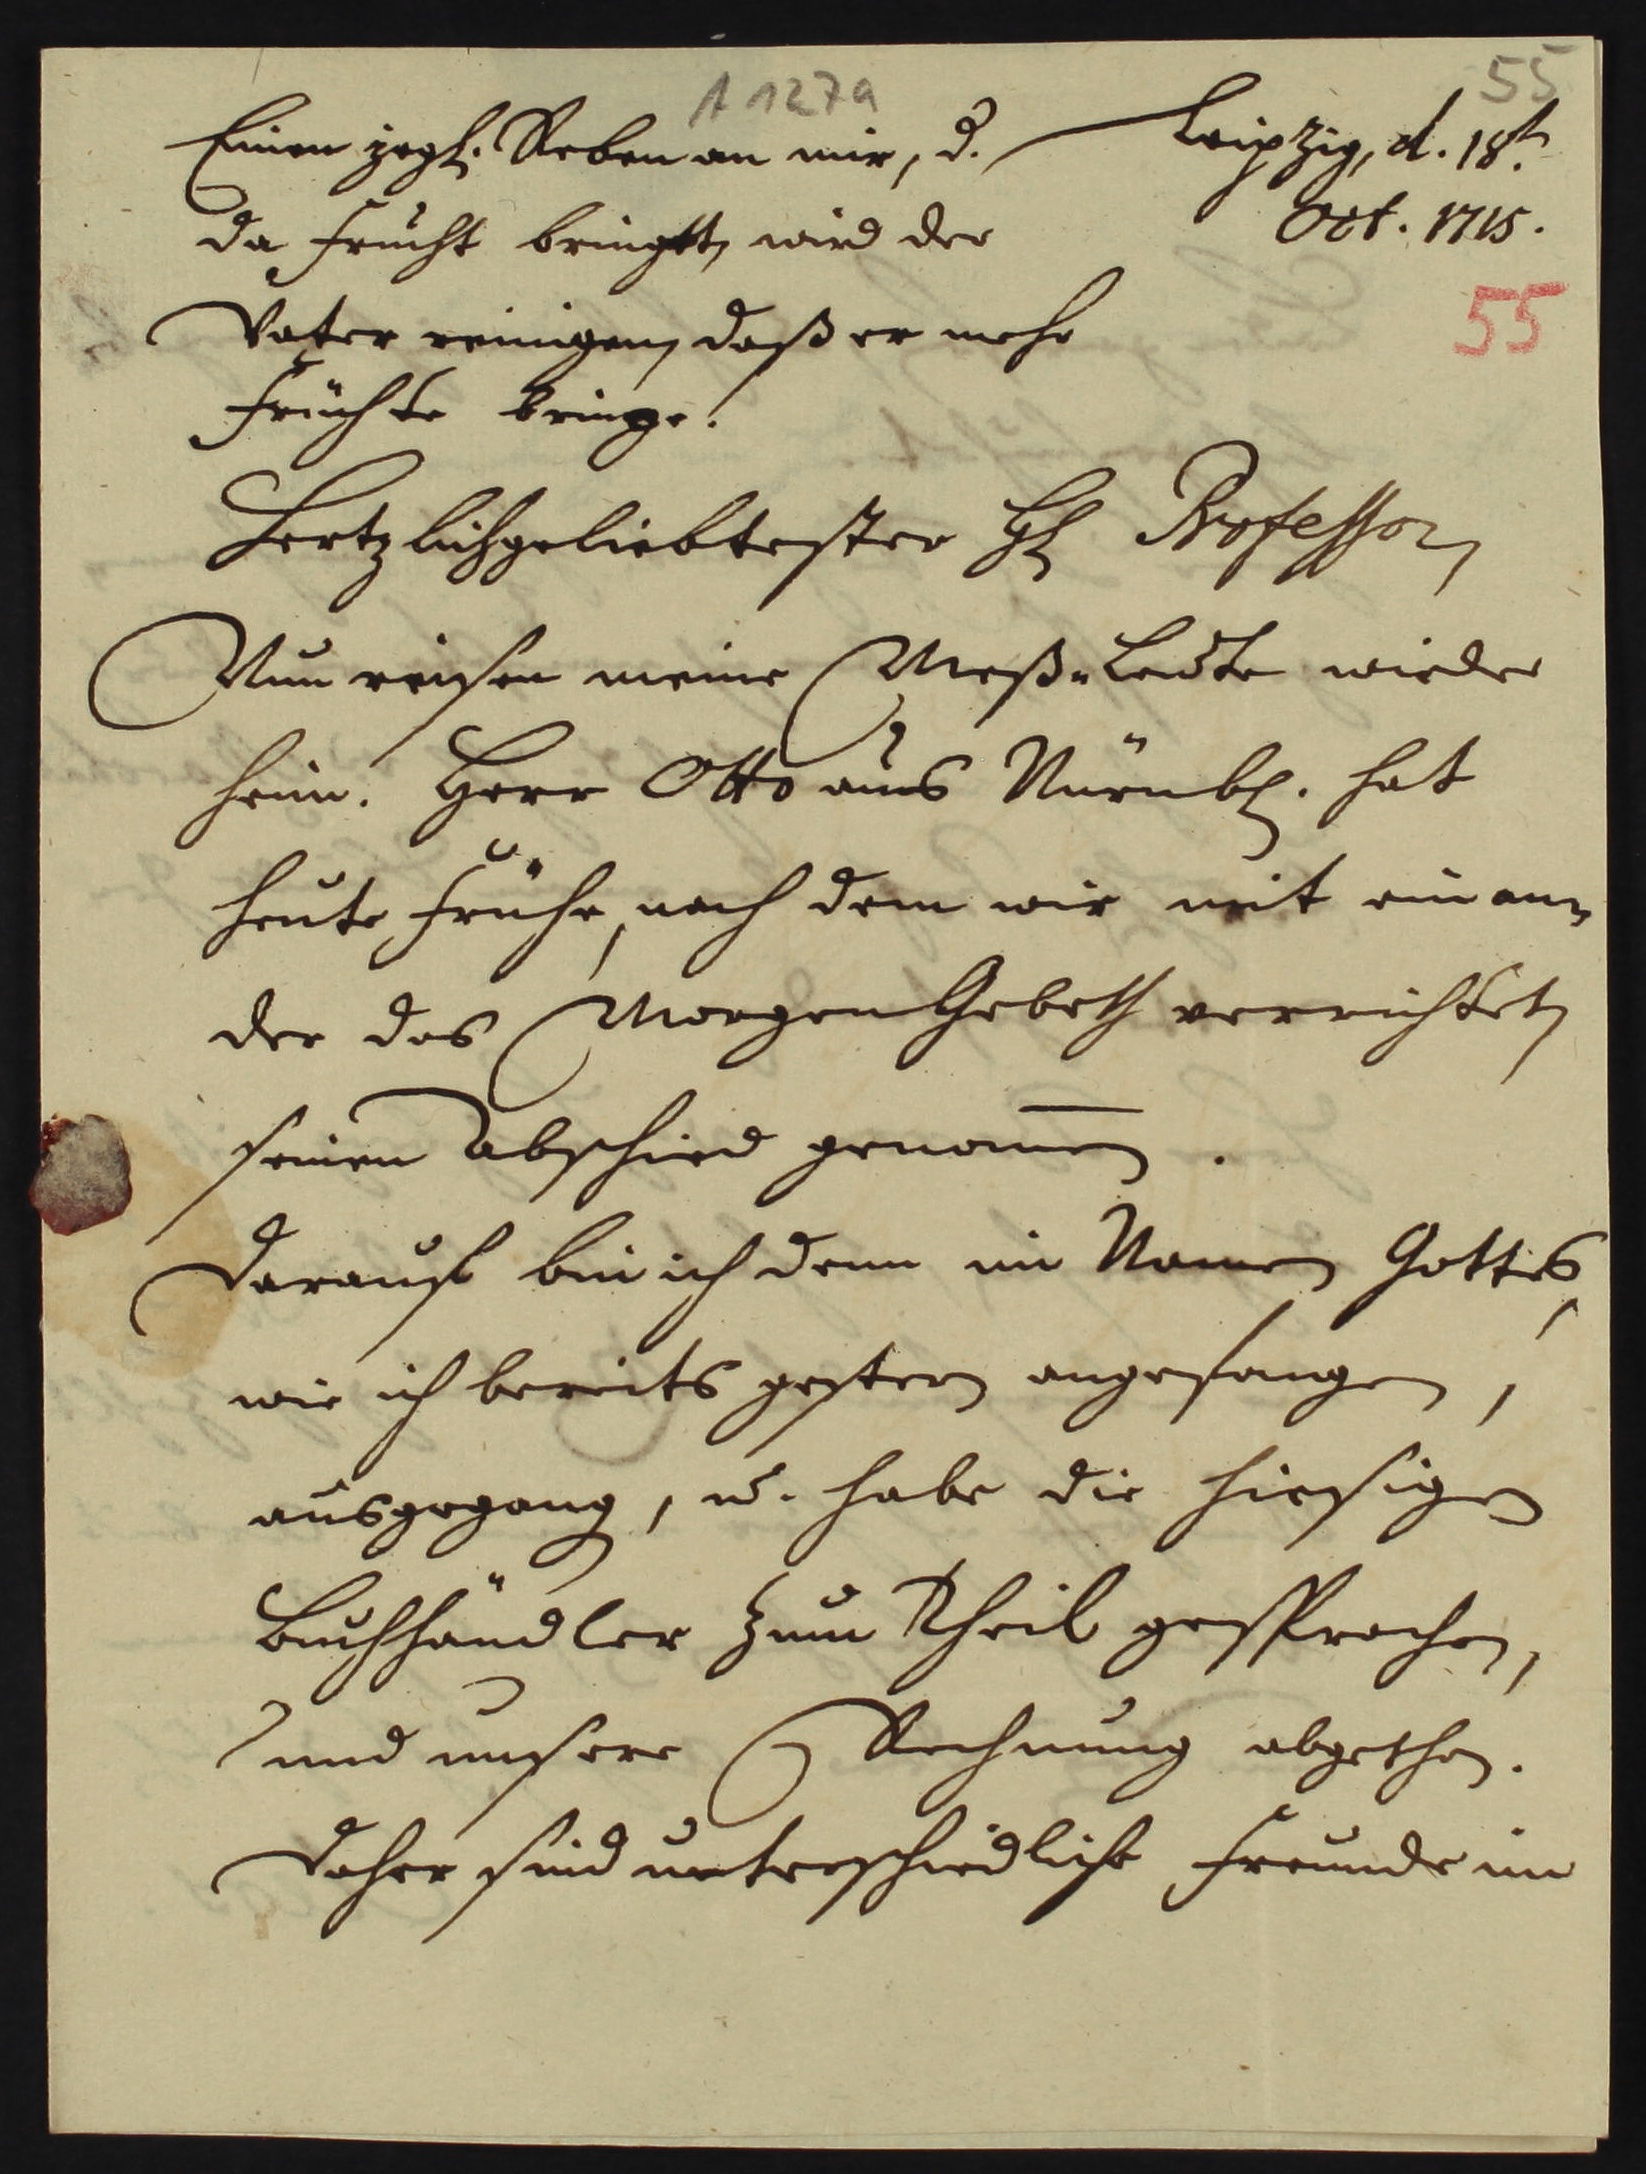 A 127a
55
Einen jegl. Reben an mir, d.
Leipzig, d. 18t.
da Frucht bringtt, wird der
Oct. 1715.
Vater reinigen, daß er mehr
55
Früchte bringe.
Hertzlichgeliebtester H Professor,
Nun reisen meine Meß-Leute wieder
heim. Herr Otto aus Nürnb. hat
heute frühe, nach dem wir mit einan-
der das MorgenGebeth verrichtet,
seinen Abschied genomen.
Darauf bin ich denn im Namen Gottes,
wie ich bereits gestern angefangen,
ausgegang, u. habe die hiesigen
Buchhändler zum Theil gesprochen,
und unsere Rechnung abgethan.
Daher sind unterschiedliche Freunde im